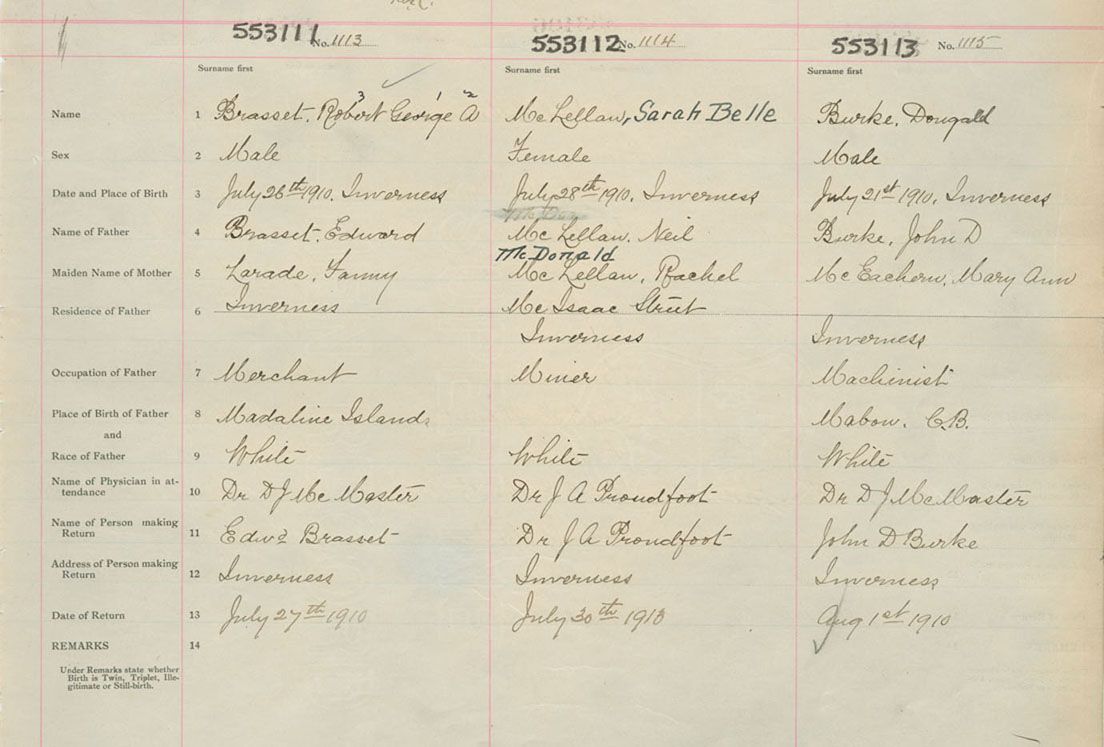 553111 No. 1113 553112 No. 1114 553113 No. 1115
Surname first Surname first Surname first
3 1 2
Name 1 Brasset, Robert George A McLellan, Sarah Belle Burke, Dougald
Sex 2 Male Female Male
Date and Place of Birth 3 July 26th 1910, Inverness July 28th 1910, Inverness July 21st 1910, Inverness
Name of Father 4 Brasset, Edward McLellan, Neil Burke, John D
McDonald
Maiden Name of Mother 5 Larade, Fanny McLellan, Rachel McEachern, Mary Ann
Residence of Father 6 Inverness McIsaac Street
Inverness Inverness
Occupation of Father 7 Merchant Miner Machinist
Place of Birth of Father 8 Madaline Islands Mabou, C.B.
and
Race of Father 9 White White White
Name of Physician in at-
tendance 10 Dr D J McMaster Dr J A Proudfoot Dr D J McMaster
Name of Person making
Return 11 Edwd Brasset Dr J A Proudfoot John D Burke
Address of Person making
Return 12 Inverness Inverness Inverness
Date of Return 13 July 27th 1910 July 30th 1910 Aug 1st 1910
REMARKS 14
Under Remarks state whether
Birth is Twin, Triplet, Ille-
gitimate or Still-birth.